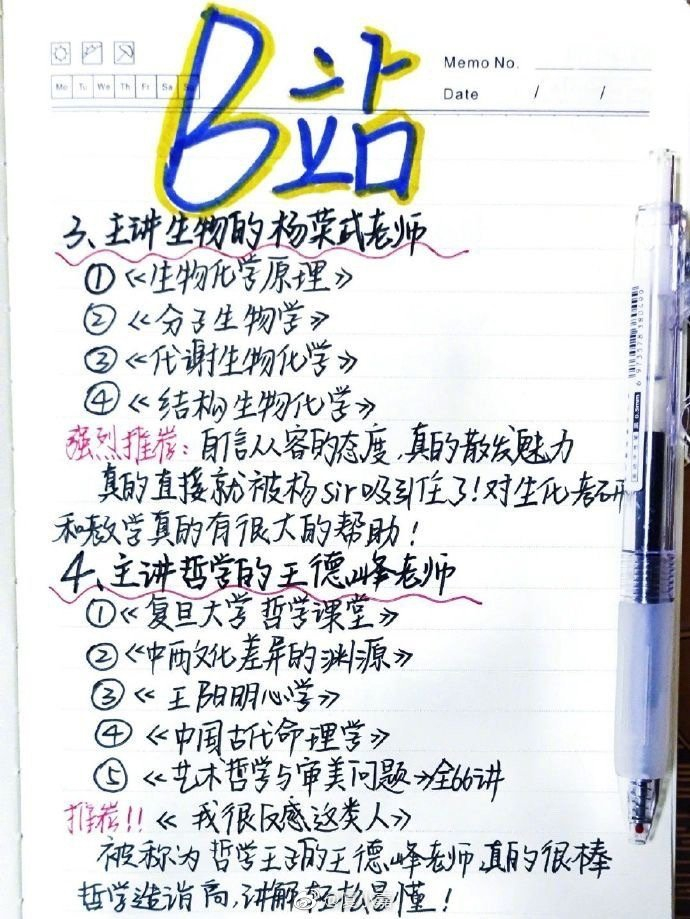 Memo No.
Mo Tu We Th Fr Sa Su
Date / /
B站
3、主讲生物的杨荣武老师
①《生物化学原理》
②《分子生物学》
③《代谢生物化学》
④《结构生物化学》
强烈推荐：自信从容的态度，真的散发魅力
真的直接就被杨sir吸引住了！对生化考研
和教学真的有很大的帮助！
4、主讲哲学的王德峰老师
①《复旦大学哲学课堂》
②《中西文化差异的渊源》
③《王阳明心学》
④《中国古代命理学》
⑤《艺术哲学与审美问题》全66讲
推荐!!《我很反感这类人》
被称为哲学王子的王德峰老师，真的很棒
哲学造诣高，讲解轻松易懂！
0.5mm
6973578380490